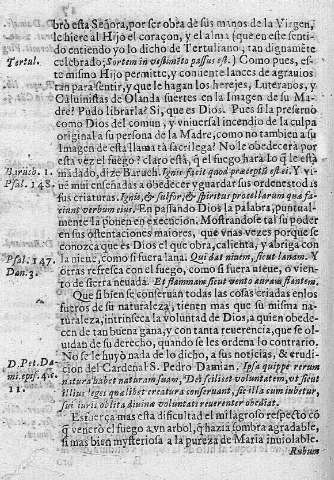 brò esta Señora, por ser obra de sus manos de la Virgen,
le hiere al Hijo el coraçon, y el alma (que en este senti-
do entiendo yo lo dicho de Tertuliano, tan dignamẽte
Tertul. celebrado; Sortem in vestimẽto passus est.) Como pues, es-
te mismo Hijo permitte, y conuiente lances de agrauios
tan para sentir, y que le hagan los herejes, Luteranos, y
Caluinistas de Olanda suertes en la Imagen de su Ma-
dre? Pudo librarla? Si, que es Dios. Pues si la preseruò
como Dios del comun, y vniuersal incendio de la culpa
original a su persona de la Madre, como no tambien a su
Imagen de esta llama tã sacrilega? No le obedecerà por
Baruch. 1. esta vez el fuego? claro està, q̃ el fuego harà lo q̃ le està
mãdado, dize Baruch. Ignis facit quod præceptũ est ei. Y vie
Psal. 148. ne mui ensenadas a obedecer y guardar sus ordenes todas
sus criaturas. Ignis, & sulfor, & spiritus procellarum quæ fa-
ciunt verbum eius. En passando Dios la palabra, puntual-
mente la ponen en execucion. Mostrandose tal su poder
en sus ostentaciones maiores, que vnas vezes porque se
conozca que es Dios el que obra, calienta, y abriga con
Psal. 147. la nieue, como si fuera lana. Qui dat niuem, sicut lanam. Y
Dan. 3. otras refresca con el fuego, como si fuera nieue, o vien-
to de sierra neuada. Et flammam sicut vento auram flantem.
Que si bien se conseruan todas las cosas criadas en los
fueros de su naturaleza, tienen mas que su misma na-
turaleza, intrinseca la voluntad de Dios, a quien obede-
cen de tan buena gana, y con tanta reuerencia, que se ol-
uidan de su derecho, quando le les ordena lo contrario.
D. Pet. Da- No se le huyò nada de lo dicho, a sus noticias, & erudi-
mi. epis. 4. c. cion del Cardenal S. Pedro Damian. Ipsa quippe rerum
11. natura habet naturam suam, Dei scilicet voluntatem, vt sicut
illius leges quælibet creatura conseruant, sic illa cum iubetur,
sui iuris oblita diuinæ voluntati reuerenter obediat.
Esfuerça mas esta dificultad el milagroso respecto cõ
q̃ venerò el fuego a vn arbol, q̃ hazia sombra agradable,
si mas bien mysteriosa a la pureza de Maria inuiolable.
Rubum